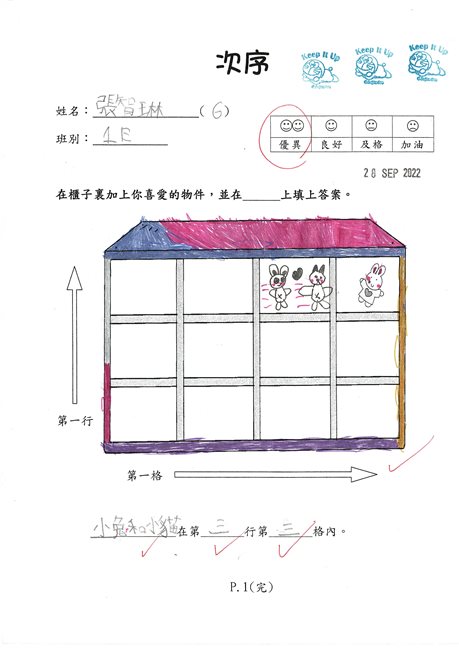 次序
Keep It Up Keep It Up Keep It Up
姓名：張智琳（6）
班別：1E
優異 良好 及格 加油
28 SEP 2022
在櫃子裏加上你喜愛的物件，並在______上填上答案。
第一行
第一格
小兔和小貓在第三行第三格內。
P.1(完)